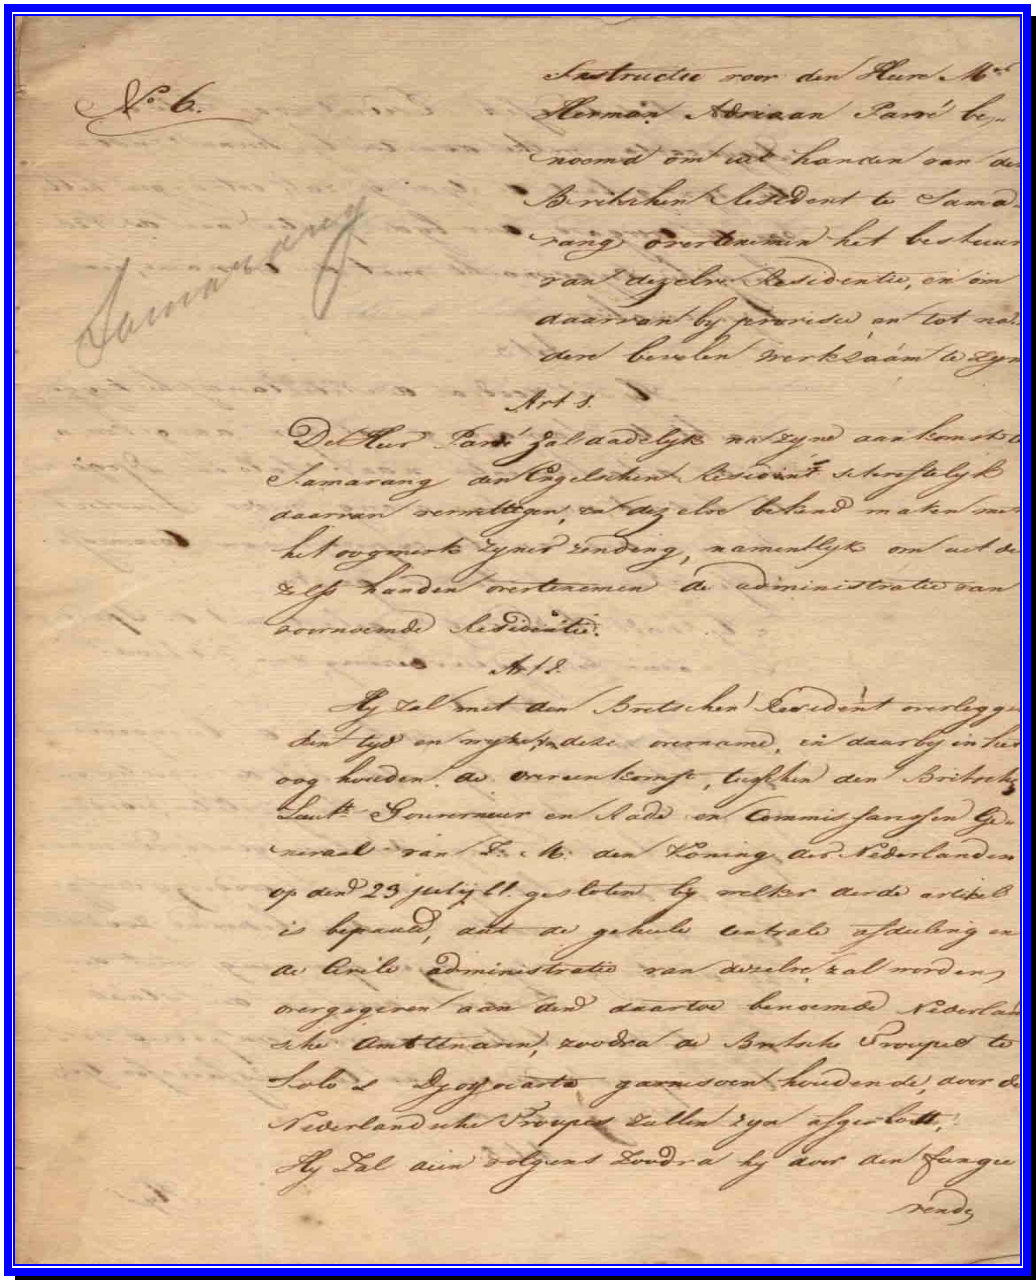 No. 6.
Samarang
Instructie voor den Heere Mr
Herman Adriaan Parvé be,,
noemd om uit handen van de
Britschen Resident te Sama,,
rang overtenemen het bestuur
van dezelve Residentie, en om
daarvan bij provisie en tot na,,
dere bevelen werkzaam te zyn
Art 1.
De Heer Parvé zal dadelyk na zyne aankomst
Samarang den Engelschen Resident schriftelyk
daarvan verwittigen, en dezelve bekend maken met
het oogmerk zyner zending, namentlyk om uit de
zelfs handen overtenemen de administratie van
voornoemde Residentie.
Art 2.
Hy zal met den Britschen Resident overlegge
den tyd en wyze deze overname, en daarby in het
oog houden de overeenkomst, tusschen den Britsche
Luitt Gouverneur en Rade en Commissarissen Ge,,
neraal van Z. M. den Koning der Nederlanden
op den 23 julij ll. gesloten by welker derde artikel
is bepaald, dat de geheele centrale afdeeling en
de Civile administratie van dezelve zal worden
overgegeven aan den daartoe benoemde Nederlan
sche Ambtenaren, zoodra de Britsche Troupes te
Solo & Djogocarta garnisoen houdende, door de
Nederlandsche Troupes zullen zyn afgelost,
Hy zal dien volgens zoodra hy door den fungee
rende